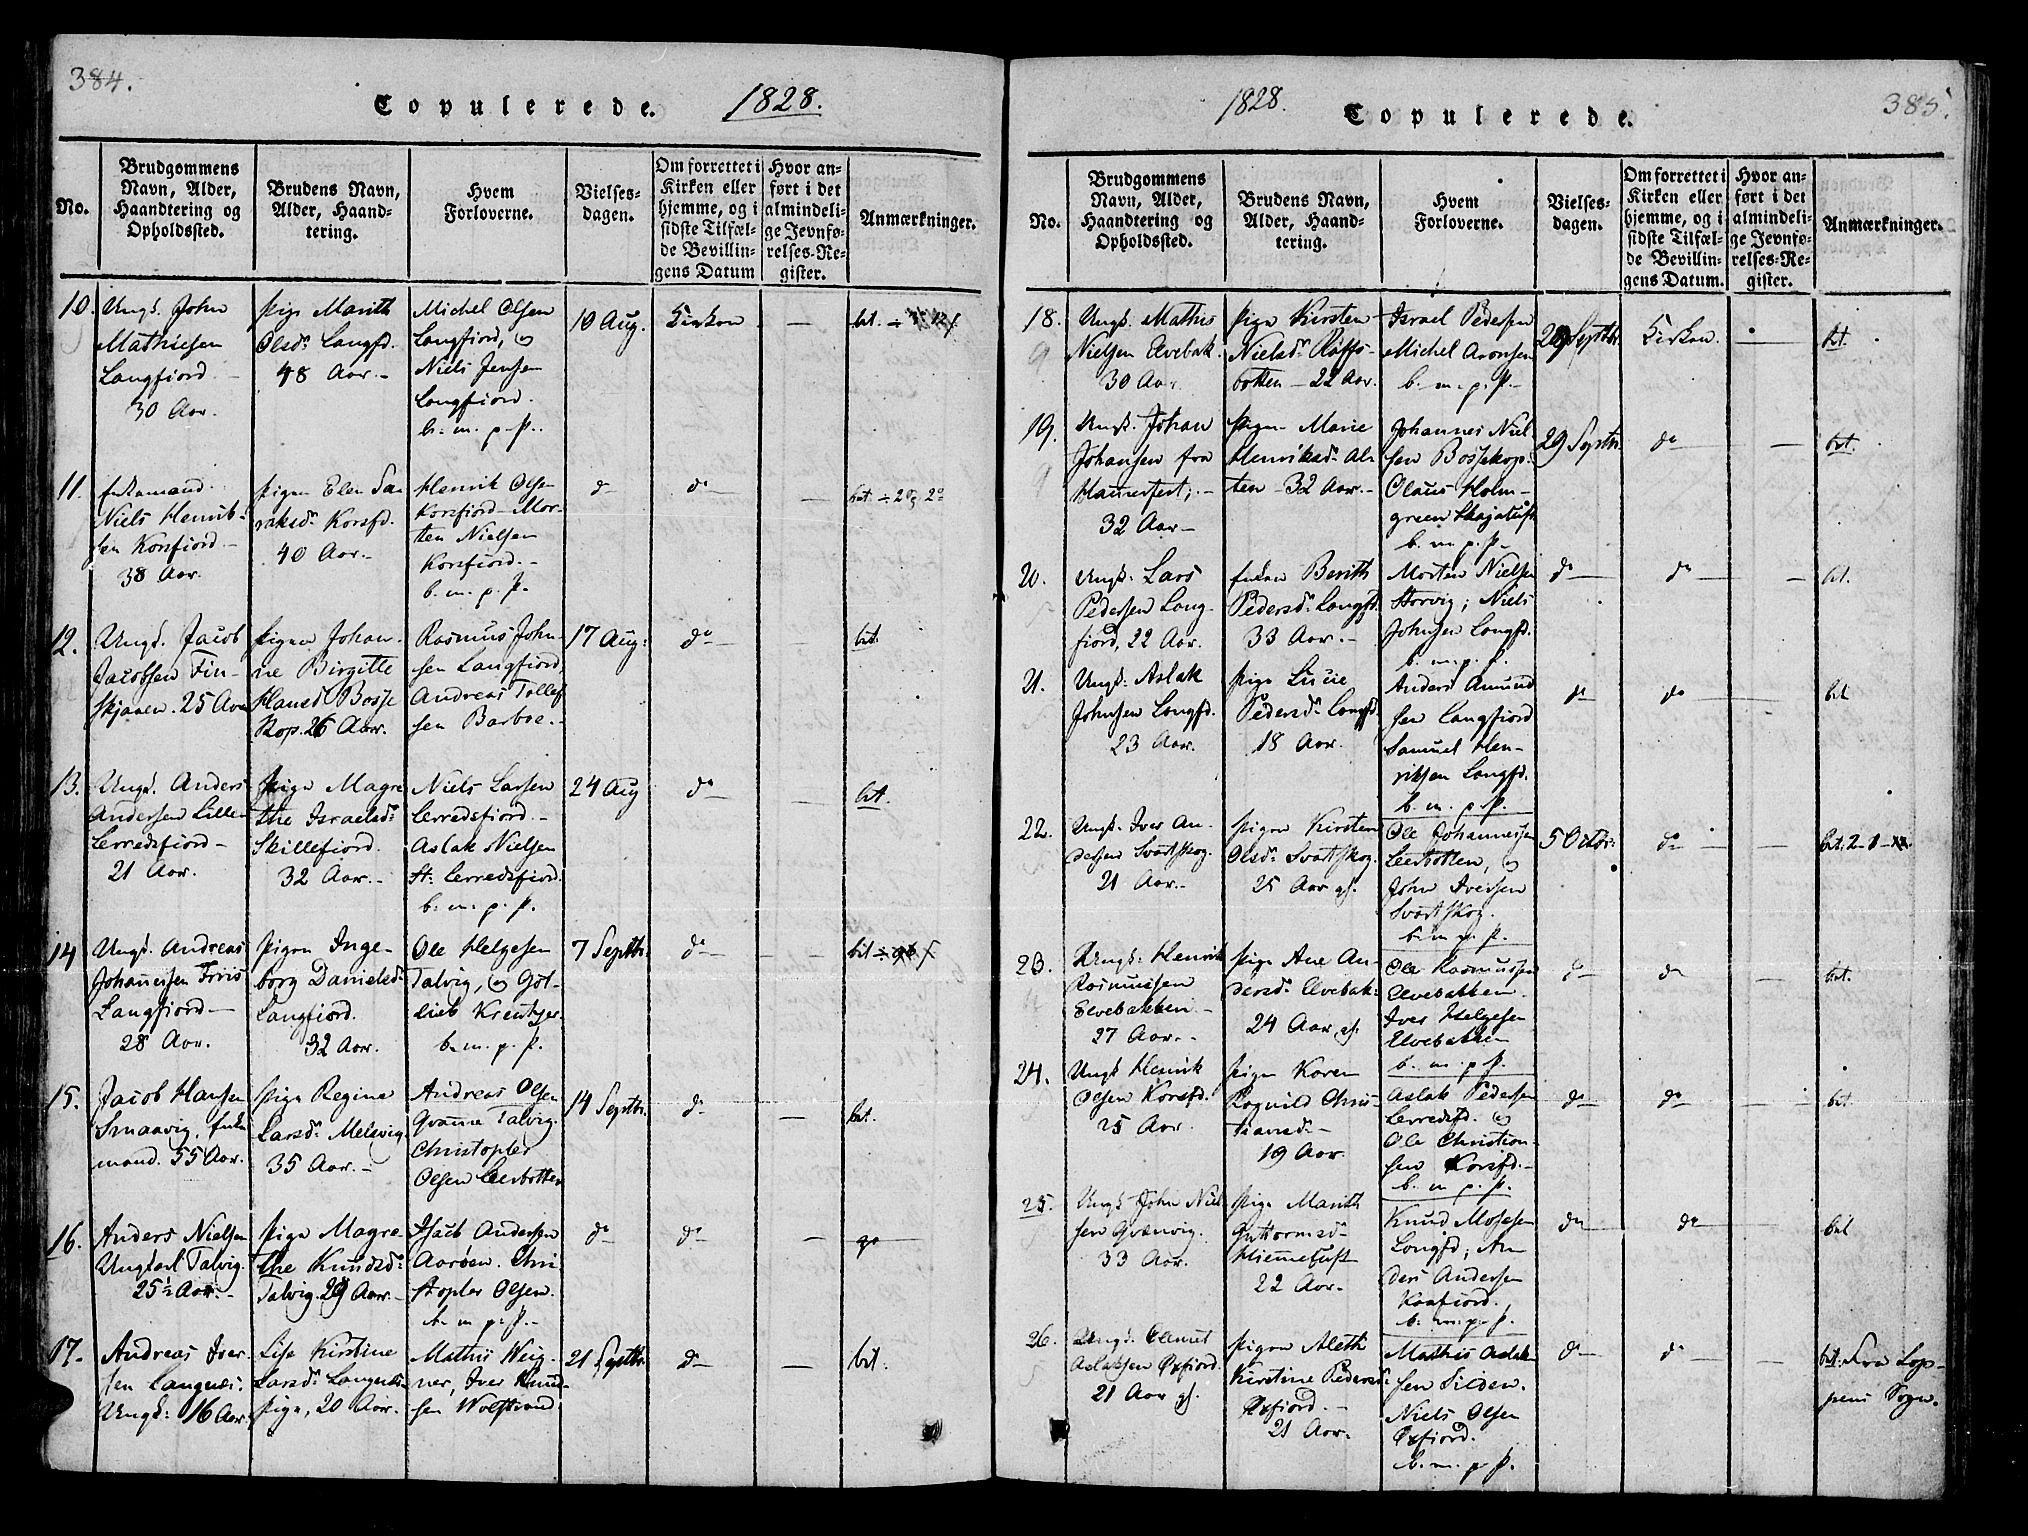 384.
Copulerede. 1828.
No.
Brudgommens Navn, Alder, Haandtering og Opholdssted.
Brudens Navn, Alder, Haandtering.
Hvem Forloverne.
Vielsesdagen.
Om forrettet i Kirken eller hjemme, og i sidste Tilfælde Bevillingens Datum
Hvor anført i det almindelige Jevnførelses-Register.
Anmærkninger.
10.
Ungk. John
Mathiesen
Langfjord
30 Aar.
Pige Marith
Olsdr Langfd.
48 Aar.
Michel Olsen
Langfiord, og
Niels Jensen
Langfiord.
b. m. p. P.
10 Aug.
Kirken
bet.
11.
Enkemand
Niels Henrik-
sen Korsfiord
38 Aar.
Pigen Elen Sa-
raksdr Korsfd.
40 Aar.
Henrik Olsen
Korsfiord Mor-
ten Nielsen
Korsfiord.
b. m. p. P.
do
do
bet.
12.
Ungk. Jacob
Jacobsen Fin-
skjaaen. 25 Aar
Pigen Johan-
ne Birgitte
Hansd Bosse
Kop. 26 Aar.
Rasmus John-
sen Langfiord,
Andreas Tollef
sen Barboe.
17 Aug:
do
bet.
13.
Ungk. Anders
Andersen Lille
Lerredsfiord
21 Aar.
Pige Magre
the Israelsdr
Skillefiord.
32 Aar.
Niels Larsen
Lerredsfiord.
Aslak Nielsen
St: Lerredsfiord.
b. m. p. P.
24 Aug
do
bet.
14
Ungk. Andreas
Johannesen Friis
Langfiord
28 Aar.
Pigen Inge-
borg Danielsdr
Langfiord.
32 Aar.
Ole Helgesen
Talvig, og Got-
lieb Kreutzer.
b. m. p. P.
7 Septbr.
do
bet
15.
Jacob Hansen
Smaavig, Enke
mand. 55 Aar.
Pige Regine
Larsdr Melsvig
35 Aar.
Andreas Olsen
Qvænne Talvig.
Christopher
Olsen Leerbotten
14 Septbr.
do
bet.
16.
Anders Nielsen
Ungkarl Talvig.
25½ Aar.
Pige Magre-
the Knudsdr
Talvig. 29 Aar.
Isach Andersen
Aaröen. Chri-
stopher Olsen.
b. m. p. P.
do
do
17.
Andreas Iver-
sen Langnæs:
Ungk: 16 Aar.
Lise Kirstine
Larsdr Langnæs:
Pige, 20 Aar.
Mathis Weig-
ner, Iver Knud-
sen Wolstrand
21 Septbr.
do
bet.
1828. Copulerede.
385.
No.
Brudgommens Navn, Alder, Haandtering og Opholdssted.
Brudens Navn, Alder, Haandtering.
Hvem Forloverne.
Vielsesdagen.
Om forrettet i Kirken eller hjemme, og i sidste Tilfælde Bevillingens Datum.
Hvor anført i det almindelige Jevnførelses-Register.
Anmærkninger.
18.
Ungk. Mathis
Nielsen Elvebak.
30 Aar.
Pige Kirsten
Nielsdr Röffs-
botten 22 Aar.
Israel Pedersen
Michel Aronsen
b. m. p. P.
Septbr
Kirken.
bet.
19.
Ungk. Johan
Johansen fra
Hammerfest,
32 Aar
Pigen Marie
Henriksdr Al-
ten 32 Aar.
Johannes Niel-
sen Bossekop.
Claus Holm-
green Skajatuft
b. m. p. P.
29 Septbr.
do
bet.
20.
Ungk. Lars
Pedersen Lang-
fiord, 22 Aar.
Enken Berith
Pedersdr Langfd.
33 Aar.
Morten Nielsen
Storvig; Niels
Johnsen Langfd.
b. m. p. P.
do
do
bet.
21.
Ungk: Aslak
Johnsen Langfd.
23 Aar.
Pige Lucie
Pedersdr Langfd.
18 Aar.
Anders Amund
sen Langfiord
Samuel Hen-
riksen Langfd.
b. m. p. P.
do
do
bet
22.
Ungk. Iver An-
dersen Svartskog.
21 Aar.
Pigen Kirsten
Olsdr Svartskog.
25 Aar gl.
Ole Johannessen
Leerbotten, og
John Iversen
Svartskog.
b. m. p. P.
5 Octbr:
do
bet.
23.
Ungk: Henrik
Rasmussen
Elvebakken
27 Aar.
Pige Ane An-
dersdr Elvebak:
24 Aar gl.
Ole Rasmussen
Elvebakken.
Iver Helgesen
Elvebakken
b. m. p. P.
do
do
bet.
24.
Ungk Henrik
Olsen Korsfd.
25 Aar.
Pigen Karen
Ragnild Chris-
tiansdr
19 Aar.
Aslak Pedersen
Lerredsfd. og
Ole Christian-
sen Korsfd.
b. m. p. P.
do
do
bet.
25.
Ungk John Niel
sen Qvænvig.
33 Aar.
Pige Marith
Guttormsdr
Hiemmeluft
22 Aar.
Knud Mosesen
Langfd; An
ders Andersen
Kaafiord.
b. m. p. P.
do
do
bet
26.
Ungk. Clemet
Aslaksen Öxfiord.
21 Aar gl.
Pigen Aleth
Kirstine Pedersdr
Öxfiord.
21 Aar.
Mathis Aslak
sen Silden.
Niels Olsen
Öxfiord.
b. m. p. P.
do
do
bet. Fra Lop-
pens Sogn.